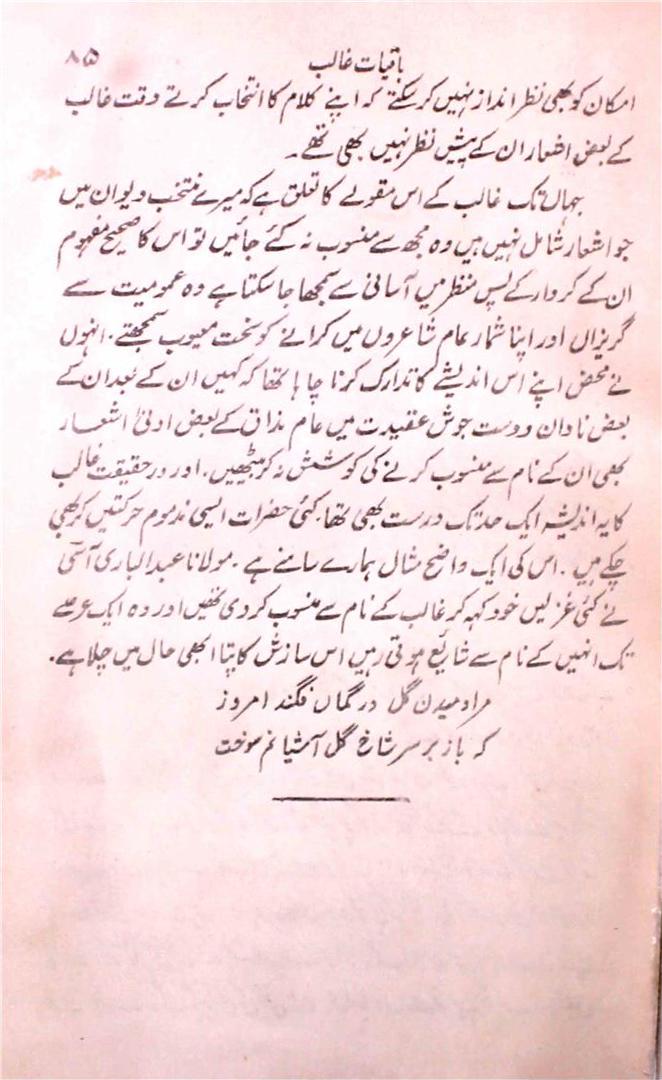 باقیات غالب
۸۵
امکان کو بھی نظر انداز نہیں کر سکتے کہ اپنے کلام کا انتخاب کرتے وقت غالب
کے بعض اشعار ان کے پیش نظر نہیں بھی تھے۔
جہاں تک غالب کے اس مقولے کا تعلق ہے کہ میرے منتخب دیوان میں
جو اشعار شامل نہیں ہیں وہ مجھ سے منسوب نہ کئے جائیں تو اس کا صحیح مفہوم
ان کے کردار کے پس منظر میں آسانی سے سمجھا جا سکتا ہے وہ عمومیت سے
گریزاں اور اپنا شمار عام شاعروں میں کرانے کو سخت معیوب سمجھتے۔ انہوں
نے محض اپنے اس اندیشے کا تدارک کرنا چاہا تھا کہ کہیں ان کے بعد ان کے
بعض نادان دوست جوش عقیدت میں عام مذاق کے بعض ادنیٰ اشعار
بھی ان کے نام سے منسوب کرنے کی کوشش نہ کر بیٹھیں۔ اور درحقیقت غالب
کا یہ اندیشہ ایک حد تک درست بھی تھا۔ کئی حضرات ایسی مذموم حرکتیں کر بھی
چکے ہیں۔ اس کی ایک واضح مثال ہمارے سامنے ہے۔ مولانا عبدالباری آسی
نے کئی غزلیں خود کہہ کر غالب کے نام سے منسوب کر دی تھیں اور وہ ایک عرصے
تک انہیں کے نام سے شایع ہوتی رہیں اس سازش کا پتا ابھی حال میں چلا ہے۔
مرا دمیدن گل در گماں فگند امروز
کہ باز بر سر شاخ گل آشیانم سوخت